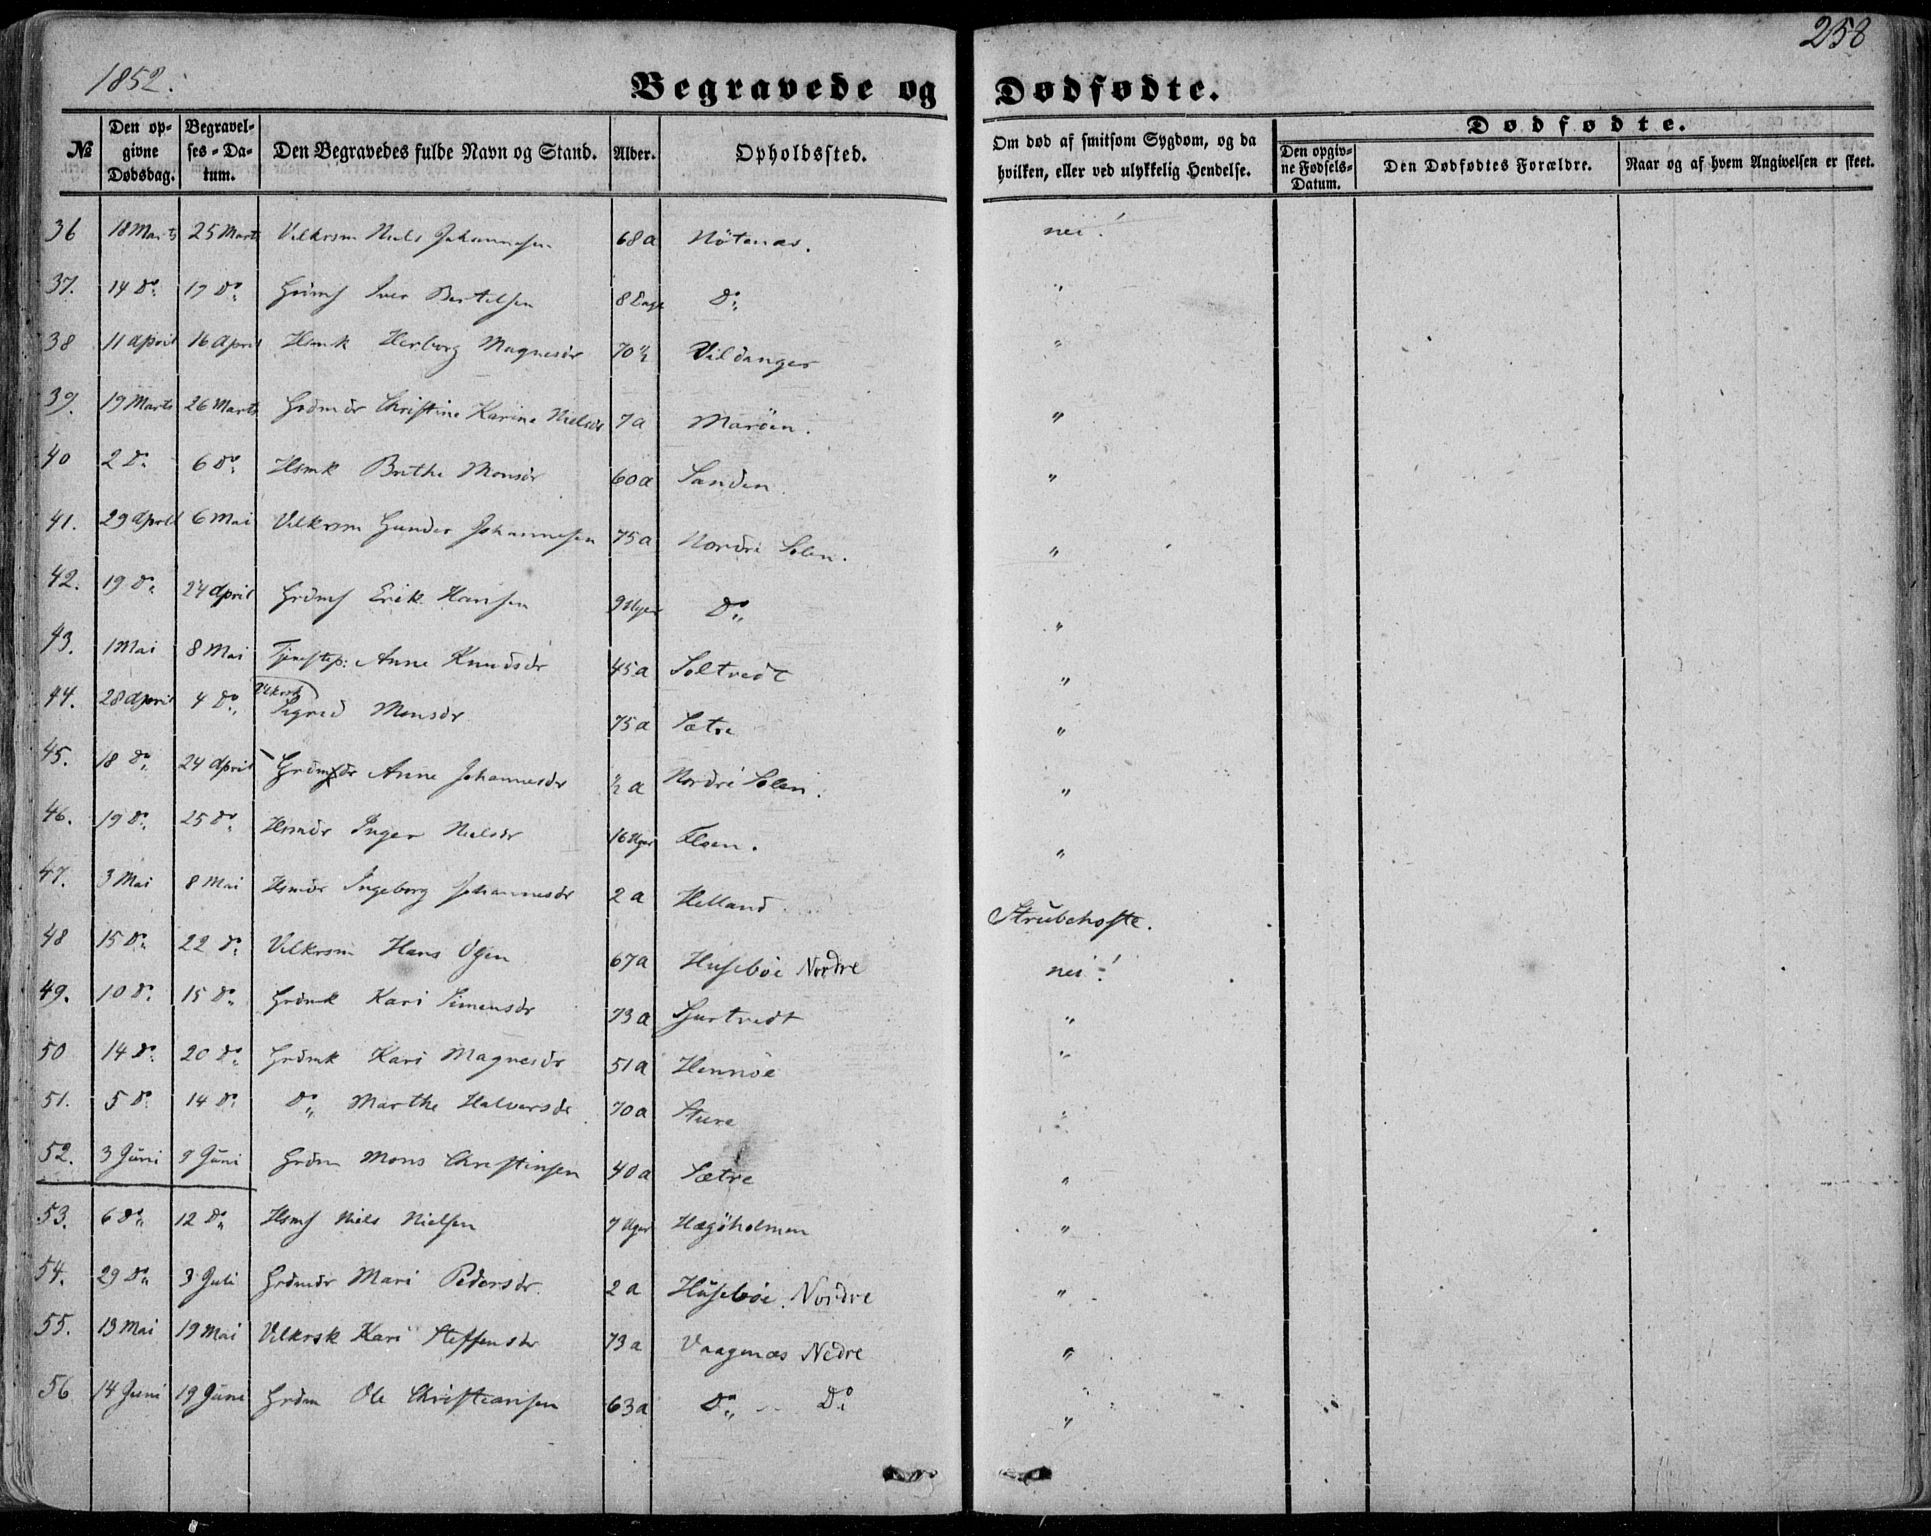 258
1852.
Begravede og Dødfødte.
№ | Den opgivne Dødsdag. | Begravelses-Datum. | Den Begravedes fulde Navn og Stand. | Alder. | Opholdssted. | Om død af smitsom Sygdom, og da hvilken, eller ved ulykkelig Hendelse. | Dødfødte. | Den opgivne Fødsels-Datum. | Den Dødfødtes Forældre. | Naar og af hvem Angivelsen er skeet.
36 18 Marts 25 Marts Vilkrsm Niels Johannesen 68 a Nötenæs. nei!
37. 14 do 17 do Grdms Iver Bertelsen 8 Dage do "
38 11 april 16 April Hsmk Herborg Magnesdr 70 Vildanger "
39. 19 Marts 26 Marts Grdmdr Christine Karine Nielsdr 7 a Maröen. "
40 2 do 6 do Hsmk Brithe Monsdr 60 a Sanden. "
41. 29 April 6 Mai Vilkrsm Gunder Johannesen 75 a Nordre Solen. "
42. 19 do 24 april Grdms Erik Hansen 9 Uger do "
43. 1 Mai 8 Mai Tjenestep: Anne Knudsdr 45 a Soltvedt "
44. 28 April 4 do Vilkrsk Sigrid Monsdr 75 a Sætre "
45. 18 do 24 April Grdmdr Anne Johannesdr ½ a Nordre Solen. "
46. 19 do 25 do Hsmdr Inger Nielsdr 16 Uger Floen. "
47. 3 Mai 8 Mai Hsmdr Ingeborg Johannesdr 2 a Helland Strubehoste.
48 15 do 22 do Vilkrsm Hans Ogen 67 a Husebøe Nordre nei!
49. 10 do 15 do Grdmk Kari Simensdr 73 a Sjurtvedt "
50 14 do 20 do Grdmk Kari Magnesdr 51 a Hennöe "
51. 5 do 14 do do Marthe Halvorsdr 70 a Sture "
52. 3 Juni 9 Juni Grdm Mons Christinsen 40 a Sætre "
53. 6 do 12 do Hsms Niels Nielsen 7 Uger Hægöholmen "
54. 29 do 3 Juli Grdmdr Mari Pedersdr. 2 a Husebøe Nordre "
55. 13 Mai 19 Mai Vilkrsk Kari Steffensdr 73 a Vaagenæs Nedre "
56 14 Juni 19 Juni Grdm Ole Christiansen 63 a do do "